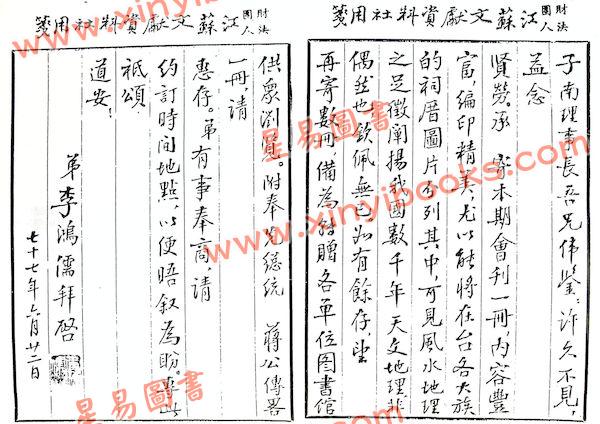 財團法人江蘇文獻資料社用箋
子南理事長吾兄偉鑒：許久不見，
益念
賢勞。承 寄本期會刊一冊，內容豐
富，編印精美，尤以能將在台各大族
的祠厝圖片列其中，可見風水地理
之足徵闡揚我國數千年天文地理非
偶然也欽佩無已如有餘存，望
再寄數冊備為轉贈各單位图書館
財團法人江蘇文獻資料社用箋
供眾瀏覽。附奉先總統 蔣公傳畧
一冊，請
惠存。弟有事奉商，請
約訂時间地點以便晤叙為盼。專此
祇頌
道安！
弟李鴻儒拜啓
七十七年六月廿二日
星易圖書
www.xinyibooks.com
星易圖書
www.xinyibooks.com
星易圖書
www.xinyibooks.com
星易圖書